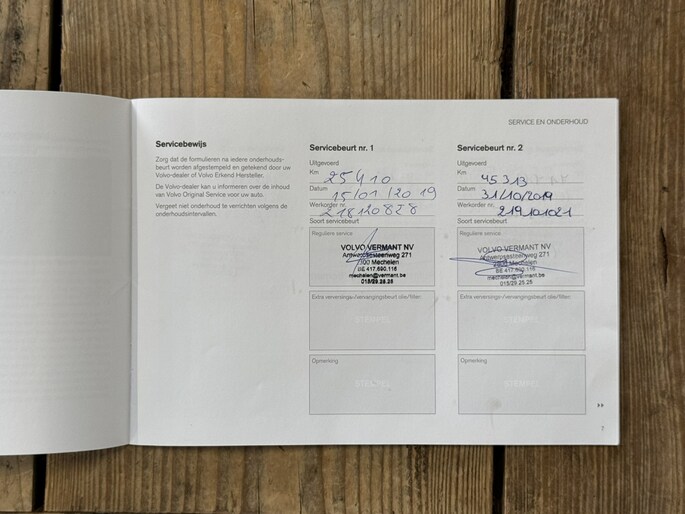 SERVICE EN ONDERHOUD
Servicebewijs
Zorg dat de formulieren na iedere onderhouds-
beurt worden afgestempeld en getekend door uw
Volvo-dealer of Volvo Erkend Hersteller.
De Volvo-dealer kan u informeren over de inhoud
van Volvo Original Service voor uw auto.
Vergeet niet onderhoud te verrichten volgens de
onderhoudsintervallen.
Servicebeurt nr. 1
Uitgevoerd
Km 25410
Datum 15/01/2019
Werkorder nr. 218120828
Soort servicebeurt
Reguliere service
VOLVO VERMANT NV
Antwerpsesteenweg 271
2800 Mechelen
BE 417.690.116
mechelen@vermant.be
015/29.25.25
Extra verversings-/vervangingsbeurt olie/filter:
STEMPEL
Opmerking
STEMPEL
Servicebeurt nr. 2
Uitgevoerd
Km 45.313
Datum 31/10/2019
Werkorder nr. 219101021
Soort servicebeurt
Reguliere service
VOLVO VERMANT NV
Antwerpsesteenweg 271
2800 Mechelen
BE 417.690.116
mechelen@vermant.be
015/29.25.25
Extra verversings-/vervangingsbeurt olie/filter:
STEMPEL
Opmerking
STEMPEL
7